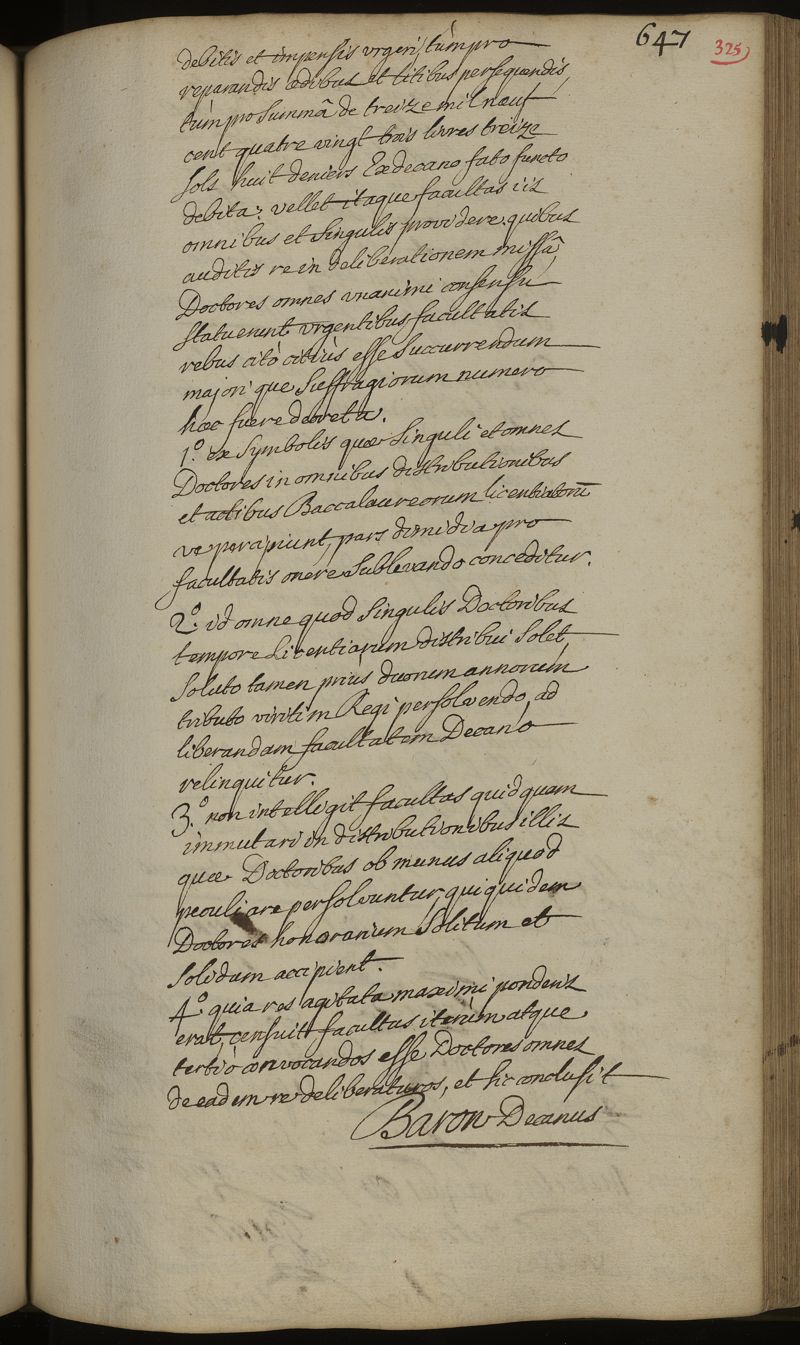 647
325
debitis et impensis vrgeri, tùm pro
reparandis ædibus et litibus persequendis,
tùm pro Summâ de treize mil neuf
cent quatre vingt trois livres treize
sols huit deniers Exdecano fato functo
debita: vellet itaque facultas iis
omnibus et singulis providere. quibus
auditis re in deliberationem missâ,
Doctores omnes vnanimi consensu
statuerunt vrgentibus facultatis
rebus citò citiùs esse succurrendum
majori que Suffragiorum numero
hæc fuere decreta.
1.º ex Symbolis quæ singuli et omnes
Doctores in omnibus distributionibus
et actibus Baccalaureorum licentiatorū
ve percipiunt, pars dimidia pro
facultatis onere Sublevando conceditur.
2.º id omne quod singulis Doctoribus
tempore Licentiarum distribui solet,
soluto tamen priùs duorum annorum
tributo viritim Regi persolvendo, ad
liberandam facultatem Decano
relinquitur.
3.º non intelligit facultas quidquam
immutari in distributionibus illis
quæ Doctoribus ob munus aliquod
peculiare persolvuntur, qui quidem
Doctores honorarium solitum et
solidum accipient.
4.º quia res agitata maximi ponderis
erat, censuit facultas iterùm atque
tertiò convocandos esse Doctores omnes
de eadem re deliberaturos, et sic conclusit
Baron Decanus